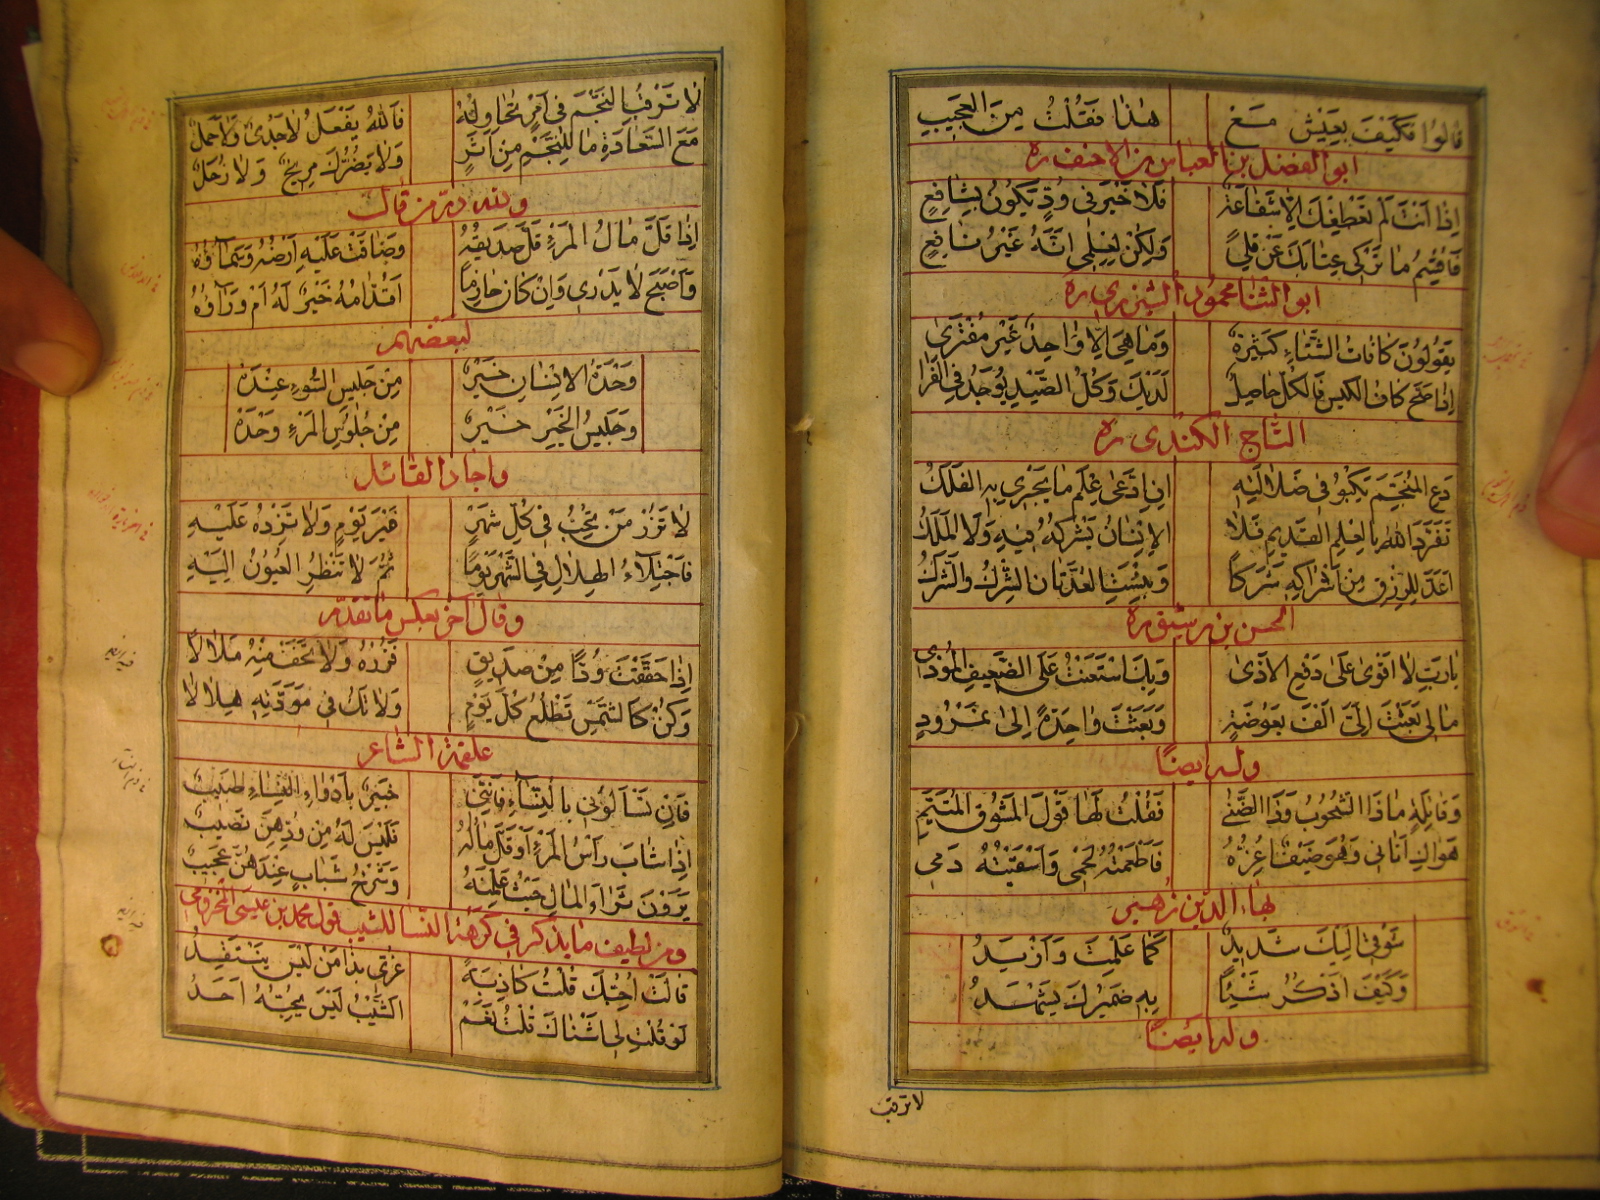 قالوا فكيف بعيش مع هذا فقلت من العجيب
ابو الفضل بن العباس بن الاحنف ره
اذا انت لم تعطفك الا شفاعة فلا خير في ود يكون بشافع
فاقسم ما تركي عتابك عن قلي ولكن لعلمي انه غير نافع
ابو الثنا محمود الشيزري ره
يقولون كافات الشتاء كثيرة وما هي الا واحد غير مفترى
اذا صح كاف الكيس فالكل حاصل لديك وكل الصيد يوجد في الفرا
التاج الكندي ره
دع المنجم يكبو في ضلالته ان ادعى علم ما يجري به الفلك
تفرد الله بالعلم القديم فلا الانسان يشركه فيه ولا الملك
اعد للرزق من اشراكه شركا وبئست العدتان الشرك والشرك
الحسن بن رشيق ره
يا رب لا اقوى على دفع الاذى وبك استعنت على الضعيف الموذي
مالي بعثت الي الف بعوضة وبعثت واحدة الى نمرود
وله ايضا
وقائلة ماذا الشحوب وذا الضنى فقلت لها قول المشوق المتيم
هواك اتاني وهو ضيف اعزه فاطعمته لحمي واسقيته دمي
بهاء الدين زهير
شوقي اليك شديد كما علمت وازيد
وكيف اذكر شيئا به ضميرك يشهد
وله ايضا
لا ترقب
لا ترقب النجم في امر تحاوله فالله يفعل لا جدي ولا حمل
مع السعادة ما للنجم من اثر ولا يضرك مريخ ولا زحل
ولله در من قال
اذا قل مال المرء قل صديقه وضاقت عليه ارضه وسماؤه
واصبح لا يدري وان كان حازما اقدامه خير له ام وراؤه
لبعضهم
وحدة الانسان خير من جليس السوء عنده
وجليس الخير خير من جلوس المرء وحده
واجاد القائل
لا تزر من يحب في كل شهر غير يوم ولا تزده عليه
فاجتلاء الهلال في الشهر يوما ثم لا تنظر العيون اليه
وقال آخر بعكس ما تقدم
اذا حققت ودا من صديق فزره ولا تخف منه ملالا
وكن كالشمس تطلع كل يوم ولا تك في مودته هلالا
علقمة الشاعر
فان تسألوني بالنساء فانني خبير بادواء النساء طبيب
اذا شاب رأس المرء او قل ماله فليس له من ودهن نصيب
يردن ثراء المال حيث علمنه وشرخ شباب عندهن عجيب
ومن لطيف ما يذكر في كرهة النسا للشيب قول محمد بن عيسى المخزومي
قالت احبك قلت كاذبة غري بذا من ليس ينتقد
لو قلت لي اشناك قلت نعم الشيب ليس يحبه احد